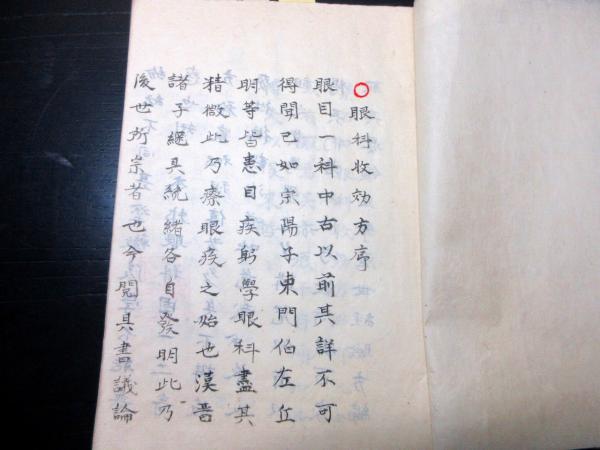 ○眼科收効方序
眼目一科中古以前其詳不可
得聞已如宗陽子東門伯左丘
明等皆患目疾躬學眼科盡其
精微此乃療眼疾之始也漢晋
諸子繼其統緒各自發明此乃
後世所宗者也今閲其書議論